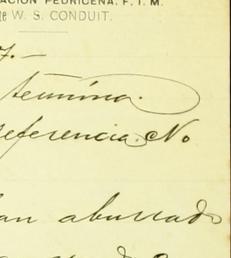 ACION PEDRICENA, F. I. M.
te W. S. CONDUIT.
7.—
termina.
referencia. No
an aburrado